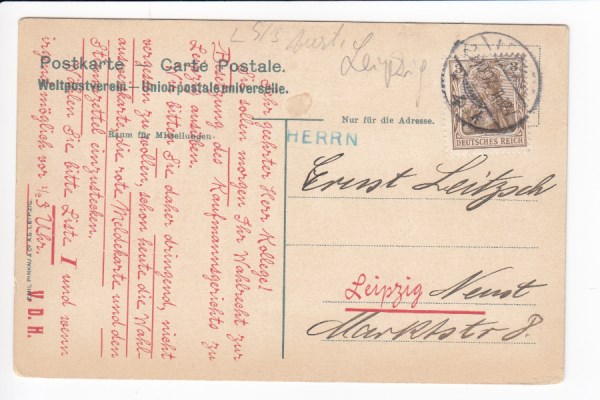 L 5/3
Leipzig
Postkarte — Carte Postale.
Weltpostverein — Union postale universelle.
Nur für die Adresse.
Raum für Mitteilungen
HERRN
DEUTSCHES REICH
Ernst Leitzsch
Leipzig Neust
Marktstr 8.
Sehr geehrter Herr Kollege!
Wir sollen morgen Ihr Wahlrecht zur
des Kaufmannsgerichts zu
Leipzig ausüben.
Wir bitten Sie daher dringend, nicht
vergessen zu wollen, schon heute die Wahl-
ausweiskarte, die rote Meldekarte und den
Stimmzettel einzustecken.
Wählen Sie bitte Liste I und wenn
irgend möglich vor ½3 Uhr.
V. D. H.